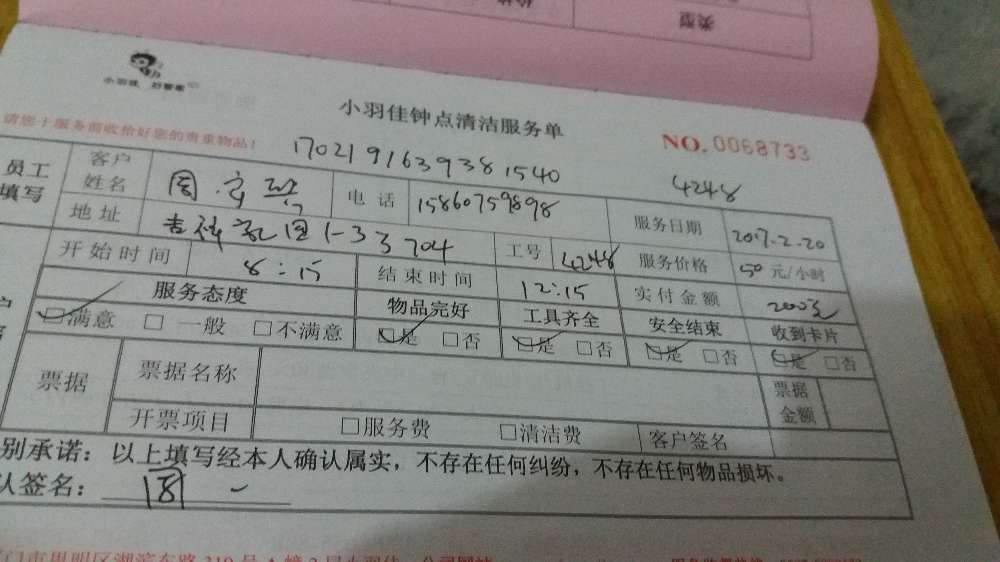 类型
小羽佳 好管家
小羽佳钟点清洁服务单
请您于服务前收拾好您的贵重物品!
NO.0068733
170219163938 1540
4248
员工填写
客户姓名 周 电话 15860759898 服务日期 2017.2.20
地址 1-33 704 工号 4248 服务价格 50元/小时
开始时间 8:15 结束时间 12:15 实付金额 200元
服务态度 物品完好 工具齐全 安全结束 收到卡片
☑满意 □一般 □不满意 ☑是 □否 ☑是 □否 ☑是 □否 ☑是 □否
票据 票据名称 票据金额
开票项目 □服务费 □清洁费 客户签名
别承诺:以上填写经本人确认属实,不存在任何纠纷,不存在任何物品损坏。
认签名: 周
门市思明区湖滨东路319号